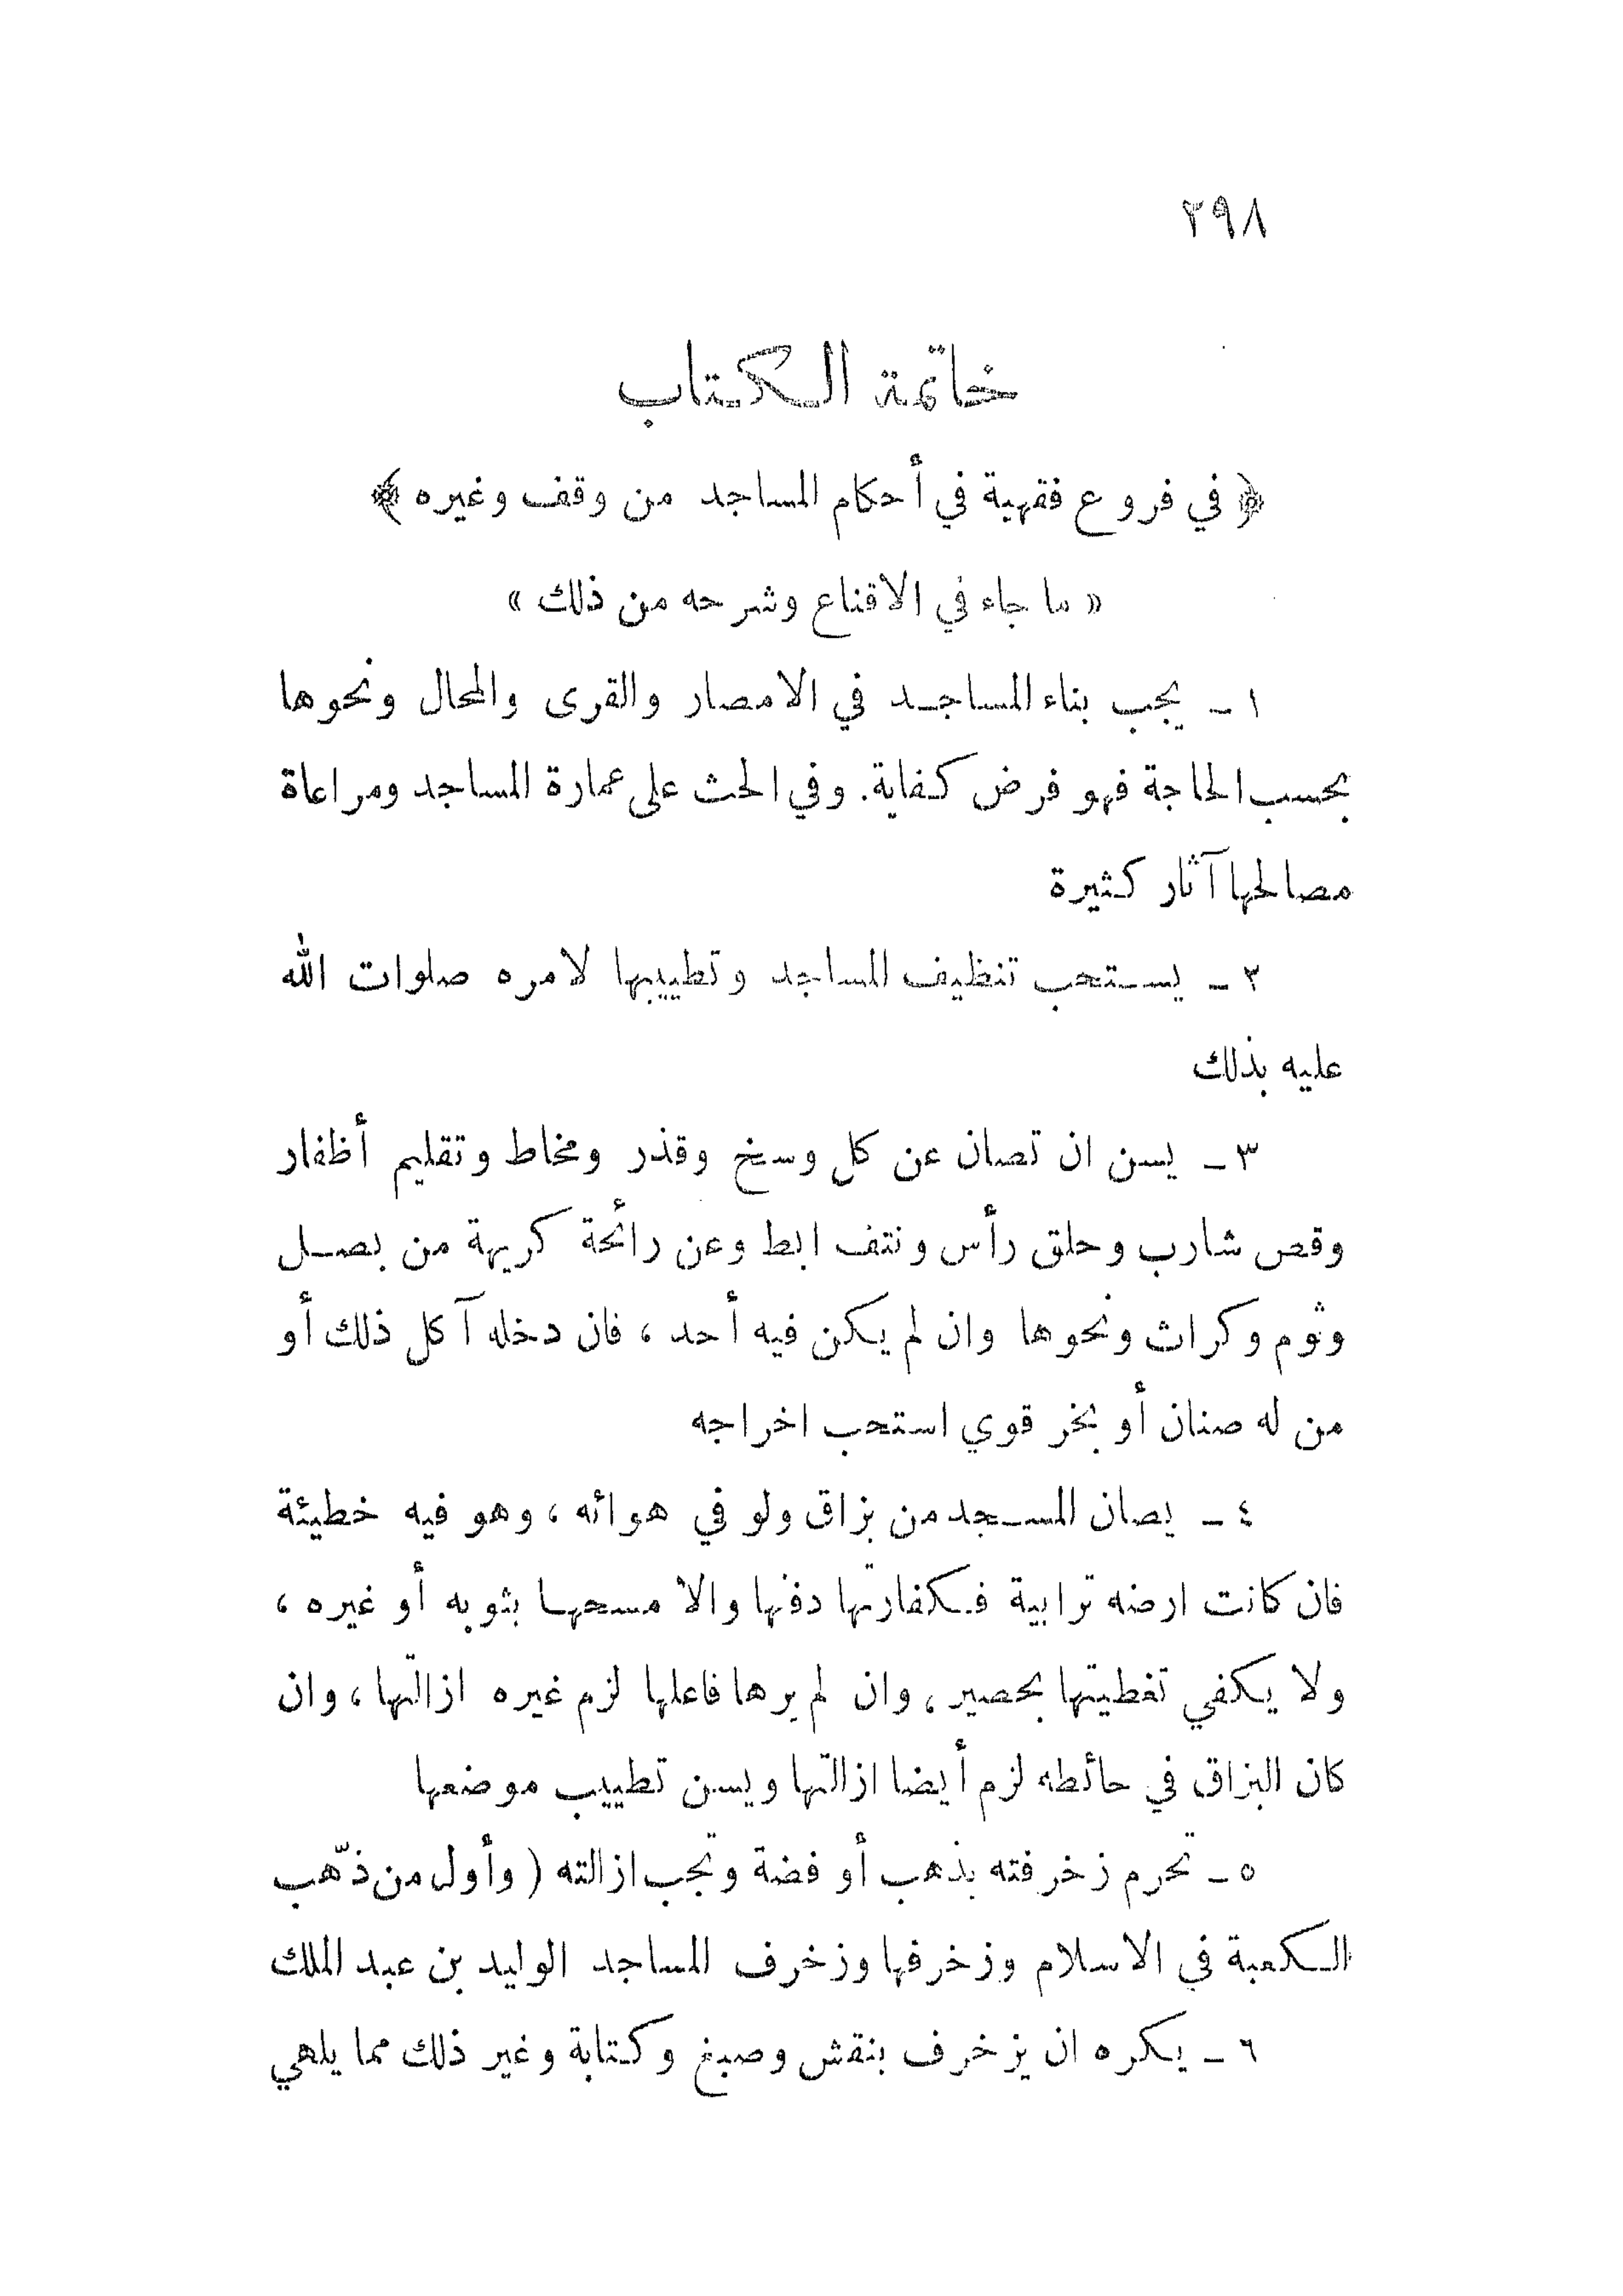 ٢٩٨
خاتمة الكتاب
﴿ في فروع فقهية في أحكام المساجد من وقف وغيره ﴾
« ما جاء في الاقناع وشرحه من ذلك »
١ - يجب بناء المساجد في الامصار والقرى والمحال ونحوها
بحسب الحاجة فهو فرض كفاية. وفي الحث على عمارة المساجد ومراعاة
مصالحها آثار كثيرة
٢ - يستحب تنظيف المساجد وتطييبها لامره صلوات الله
عليه بذلك
٣ - يسن ان تصان عن كل وسخ وقذر ومخاط وتقليم أظفار
وقص شارب وحلق رأس ونتف ابط وعن رائحة كريهة من بصل
وثوم وكراث ونحوها وان لم يكن فيه أحد ، فان دخله آكل ذلك أو
من له صنان أو بخر قوي استحب اخراجه
٤ - يصان المسجد من بزاق ولو في هوائه ، وهو فيه خطيئة
فان كانت ارضه ترابية فكفارتها دفنها والا مسحها بثوبه أو غيره ،
ولا يكفي تغطيتها بحصير ، وان لم يرها فاعلها لزم غيره ازالتها ، وان
كان البزاق في حائطه لزم أيضا ازالتها ويسن تطييب موضعها
٥ - تحرم زخرفته بذهب أو فضة وتجب ازالته ( وأول من ذهّب
الكعبة في الاسلام وزخرفها وزخرف المساجد الوليد بن عبد الملك
٦ - يكره ان يزخرف بنقش وصبغ وكتابة وغير ذلك مما يلهي